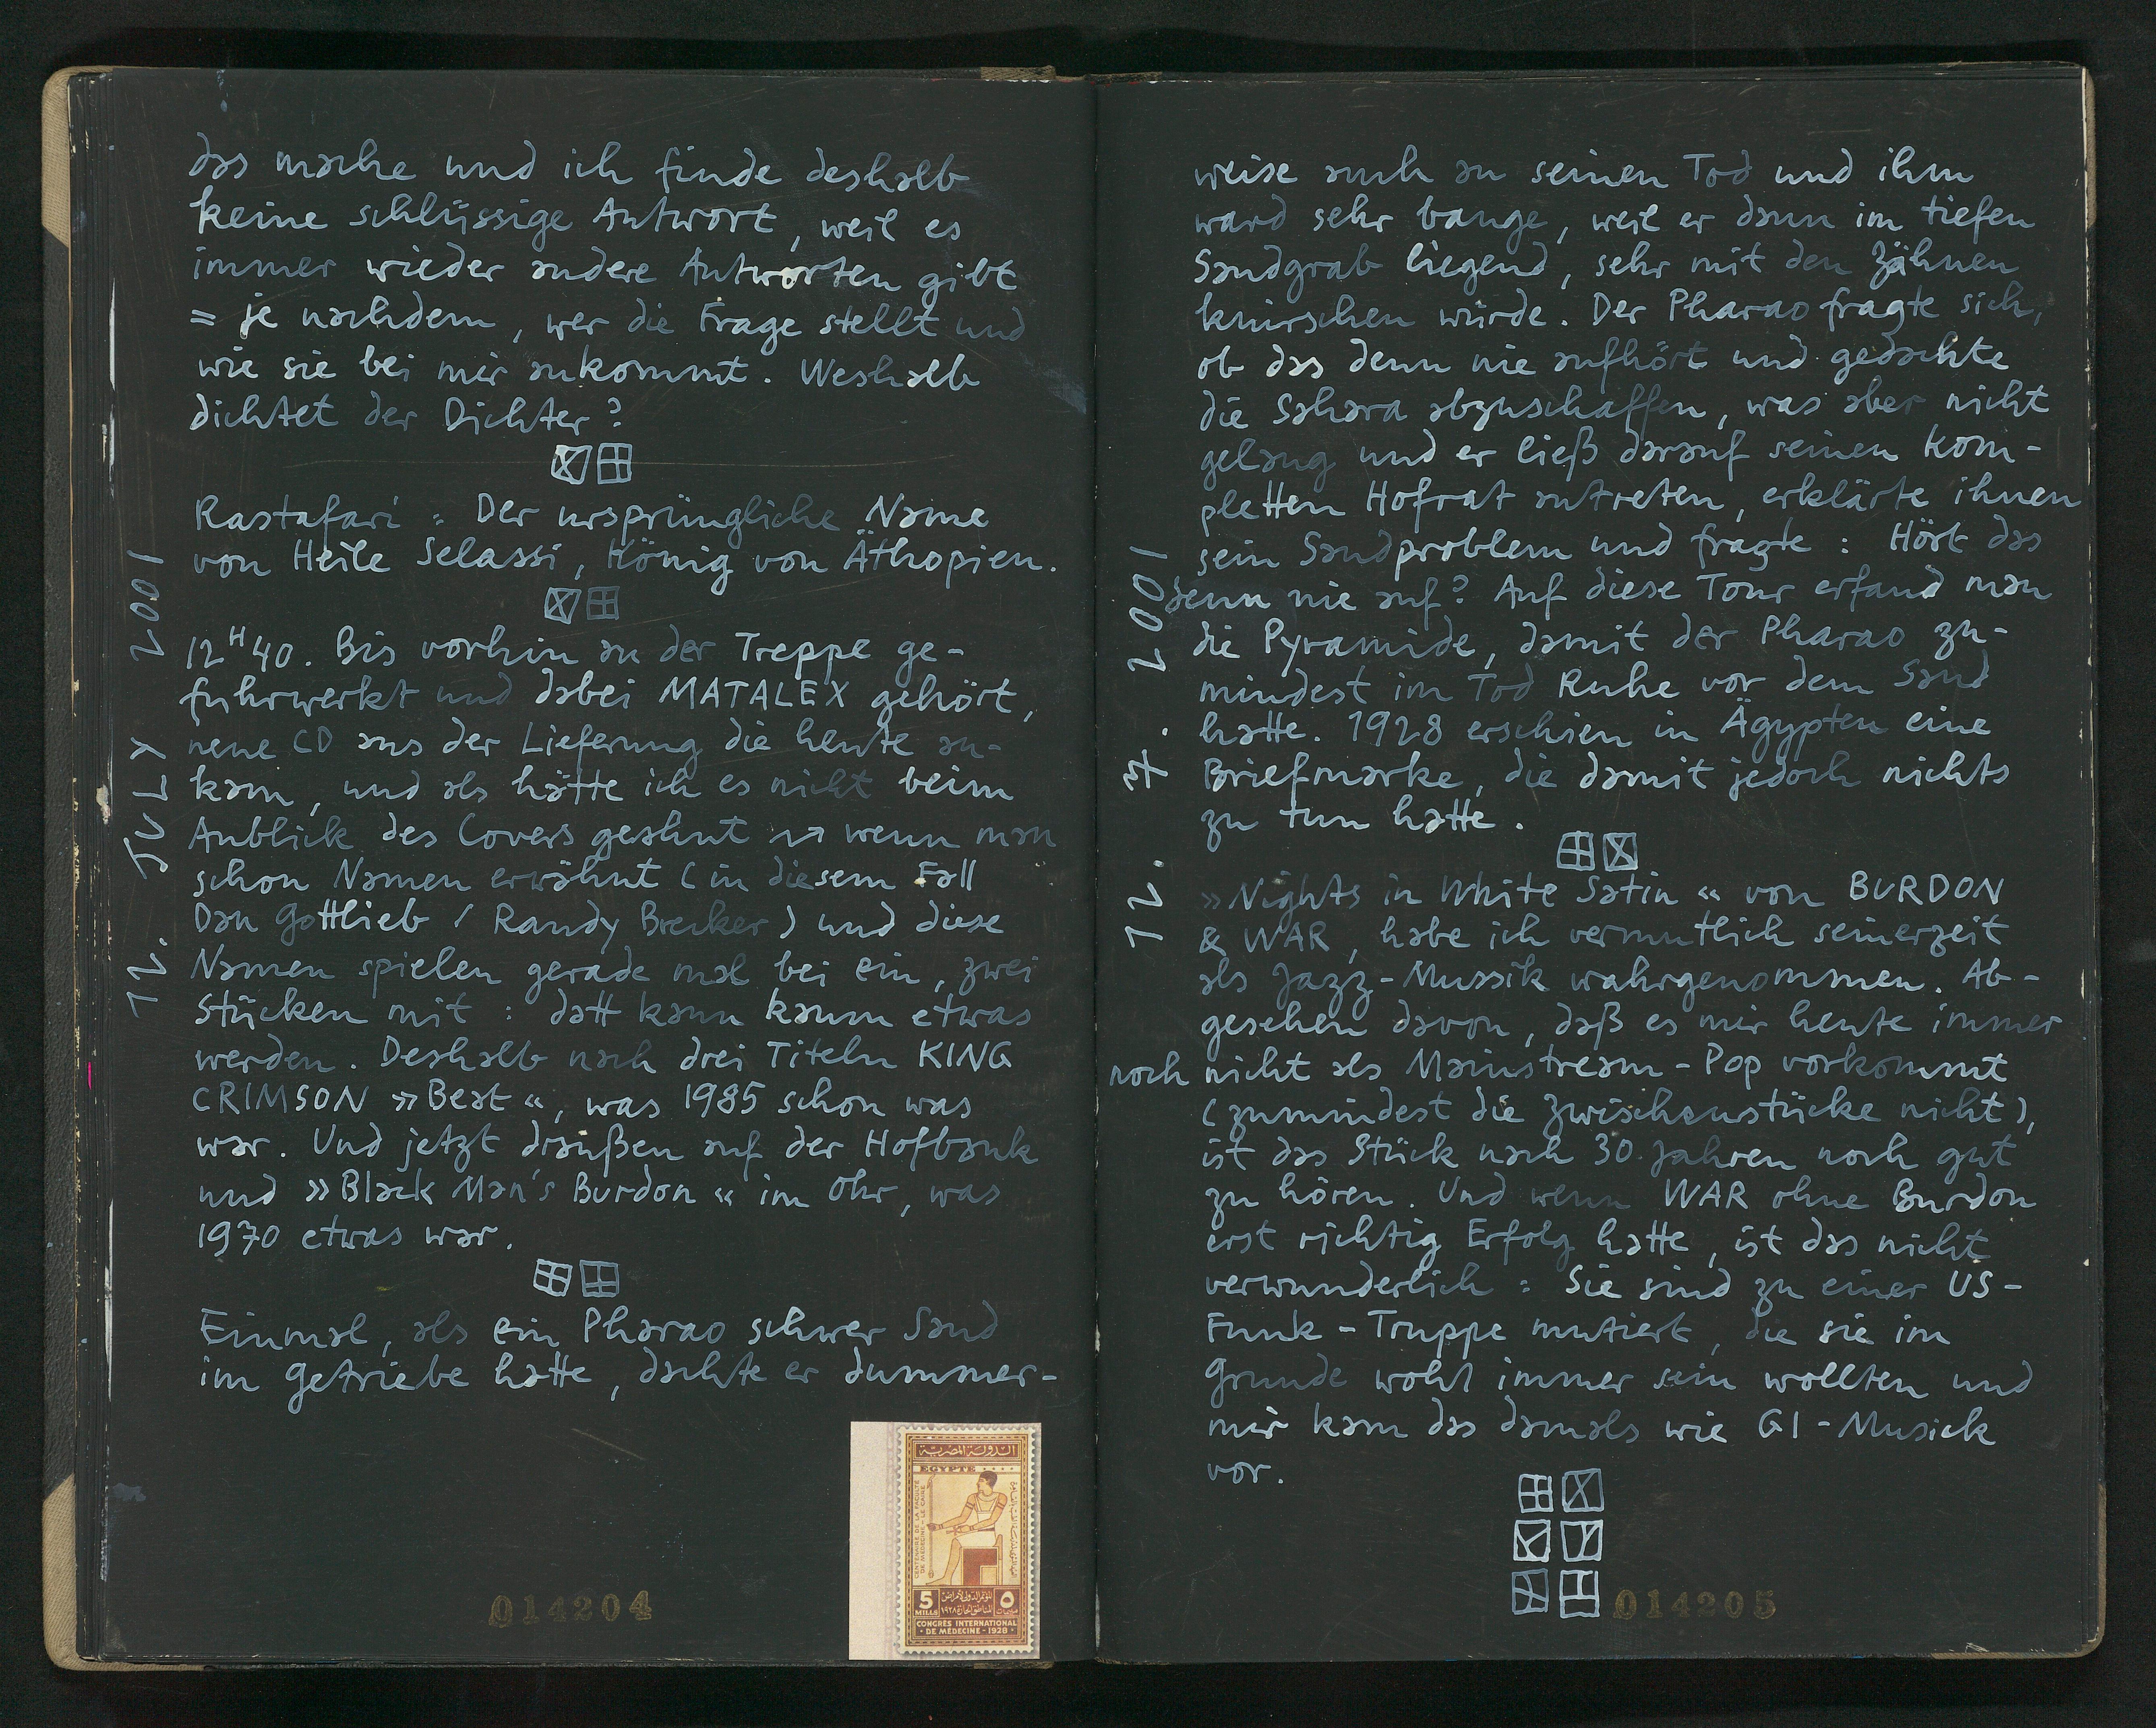 das mache und ich finde deshalb
keine schlüssige Antwort, weil es
immer wieder andere Antworten gibt
= je nachdem, wer die Frage stellt und
wie sie bei mir ankommt. Weshalb
dichtet der Dichter?
Rastafari = Der ursprüngliche Name
von Heile Selassi, König von Äthopien.
12H40. Bis vorhin an der Treppe ge-
fuhrwerkt und dabei MATALEX gehört,
neue CD aus der Lieferung die heute an-
kam, und als hätte ich es nicht beim
Anblick des Covers geahnt wenn man
schon Namen erwähnt (in diesem Fall
Dan Gottlieb / Randy Brecker) und diese
Namen spielen gerade mal bei ein, zwei
Stücken mit: datt kann kaum etwas
werden. Deshalb nach drei Titeln KING
CRIMSON »Best«, was 1985 schon was
war. Und jetzt draußen auf der Hofbank
und »Black Man's Burdon« im Ohr, was
1970 etwas war.
Einmal, als ein Pharao schwer Sand
im Getriebe hatte, dachte er dummer-
12. JULY 2001
الدولة المصرية
EGYPTE
CENTENAIRE DE LA FACULTE
DE MEDECINE - LE CAIRE
5
MILLS
٥
CONGRÈS INTERNATIONAL
DE MÉDECINE - 1928
014204
weise auch an seinen Tod und ihm
ward sehr bange, weil er dann im tiefen
Sandgrab liegend, sehr mit den Zähnen
knirschen würde. Der Pharao fragte sich,
ob das denn nie aufhört und gedachte
die Sahara abzuschaffen, was aber nicht
gelang und er ließ darauf seinen kom-
pletten Hofrat antreten, erklärte ihnen
sein Sandproblem und fragte: Hört das
denn nie auf? Auf diese Tour erfand man
die Pyramide, damit der Pharao zu-
mindest im Tod Ruhe vor dem Sand
hatte. 1928 erschien in Ägypten eine
Briefmarke, die damit jedoch nichts
zu tun hatte.
»Nights in White Satin« von BURDON
& WAR, habe ich vermutlich seinerzeit
als Jazz-Mussik wahrgenommen. Ab-
gesehen davon, daß es mir heute immer
noch nicht als Mainstream-Pop vorkommt
(zumindest die Zwischenstücke nicht),
ist das Stück nach 30 Jahren noch gut
zu hören. Und wenn WAR ohne Burdon
erst richtig Erfolg hatte, ist das nicht
verwunderlich: Sie sind zu einer US-
Funk-Truppe mutiert, die sie im
Grunde wohl immer sein wollten und
mir kam das damals wie GI-Musick
vor.
12. 7. 2001
014205